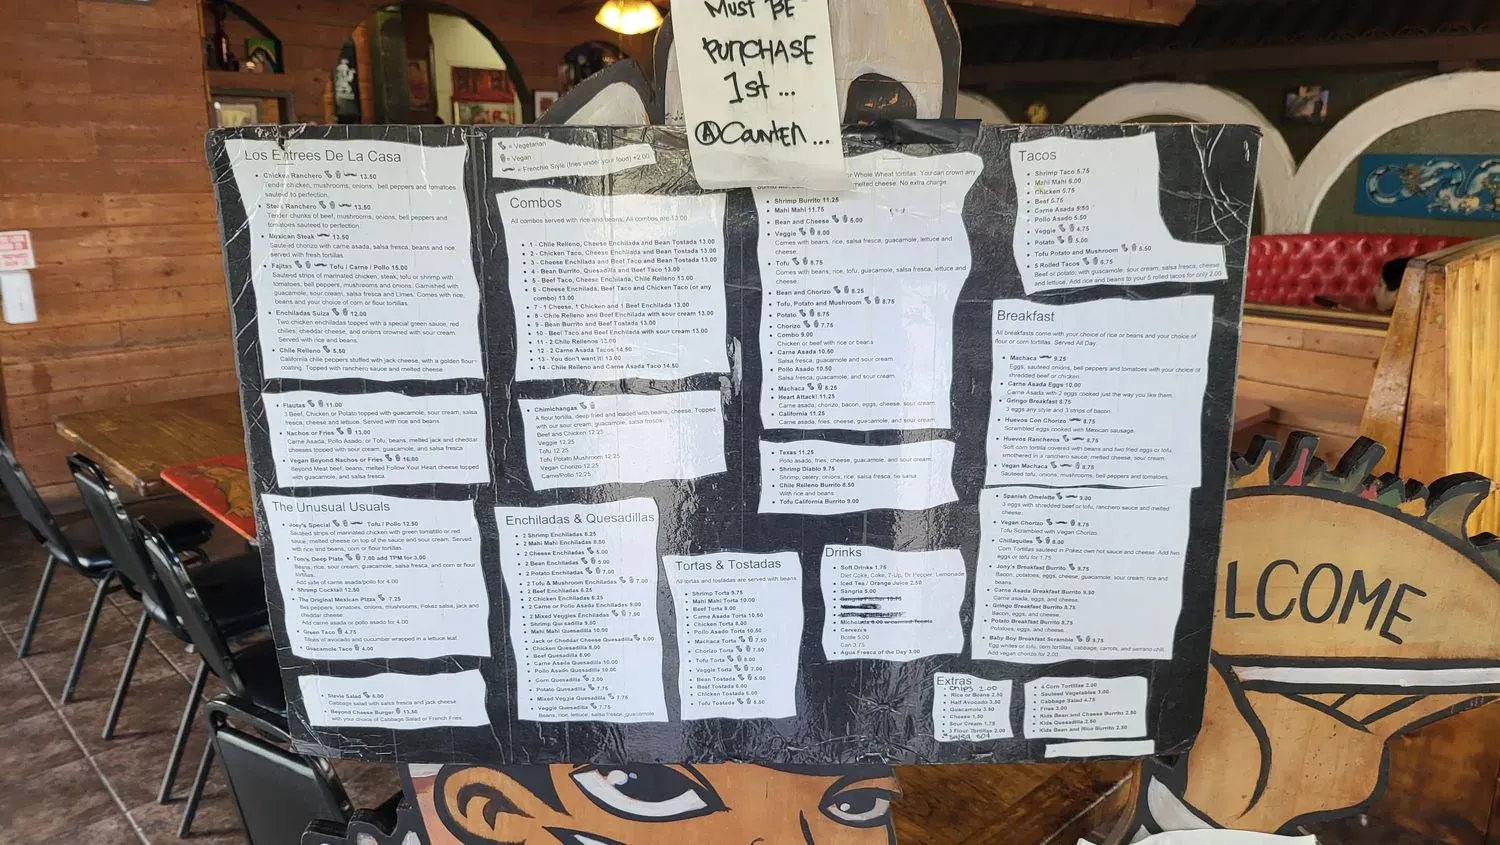 MUST BE
PURCHASE
1st ...
@ Counter ...
Los Entrees De La Casa
Chicken Ranchero 13.50
Tender chicken, mushrooms, onions, bell peppers and tomatoes
sauteed to perfection.
Steak Ranchero 13.50
Tender chunks of beef, mushrooms, onions, bell peppers and
tomatoes sauteed to perfection.
Mexican Steak 13.50
Sauteed chorizo with carne asada, salsa fresca, beans and rice,
served with fresh tortillas.
Fajitas Tofu / Carne / Pollo 15.00
Sauteed strips of marinated chicken, steak, tofu or shrimp with
tomatoes, bell peppers, mushrooms and onions. Garnished with
guacamole, sour cream, salsa fresca and Limes. Comes with rice,
beans and your choice of corn or flour tortillas.
Enchiladas Suiza 12.00
Two chicken enchiladas topped with a special green sauce, red
chilies, cheddar cheese, and onions crowned with sour cream.
Served with rice and beans.
Chile Relleno 5.50
California chile peppers stuffed with jack cheese, with a golden flour
coating. Topped with ranchero sauce and melted cheese.
Flautas 11.00
3 Beef, Chicken or Potato topped with guacamole, sour cream, salsa
fresca, cheese and lettuce. Served with rice and beans.
Nachos or Fries 13.00
Carne Asada, Pollo Asado, or Tofu, beans, melted jack and cheddar
cheeses topped with sour cream, guacamole, and salsa fresca
Vegan Beyond Nachos or Fries 16.00
Beyond Meat beef, beans, melted Follow Your Heart cheese topped
with guacamole, and salsa fresca.
The Unusual Usuals
Joey's Special Tofu / Pollo 12.50
Sauteed strips of marinated chicken with green tomatillo or red
sauce, melted cheese on top of the sauce and sour cream. Served
with rice and beans, corn or flour tortillas.
Tom's Deep Plate 7.00 add TPM for 3.00
Beans, rice, sour cream, guacamole, salsa fresca, and corn or flour
tortillas.
Add side of carne asada/pollo for 4.00
Shrimp Cocktail 12.50
The Original Mexican Pizza 7.25
Bell peppers, tomatoes, onions, mushrooms, Pokez salsa, jack and
cheddar cheese
Add carne asada or pollo asado for 4.00
Green Taco 4.75
Slices of avocado and cucumber wrapped in a lettuce leaf
Guacamole Taco 4.00
Stevie Salad 6.00
Cabbage salad with salsa fresca and jack cheese
Beyond Cheese Burger 13.50
with your choice of Cabbage Salad or French Fries
= Vegetarian
= Vegan
= Frenchie Style (fries under your food) +2.00
Combos
All combos served with rice and beans. All combos are 13.00
1 - Chile Relleno, Cheese Enchilada and Bean Tostada 13.00
2 - Chicken Taco, Cheese Enchilada and Bean Tostada 13.00
3 - Cheese Enchilada and Beef Taco and Bean Tostada 13.00
4 - Bean Burrito, Quesadilla and Beef Taco 13.00
5 - Beef Taco, Cheese Enchilada, Chile Relleno 13.00
6 - Cheese Enchilada, Beef Taco and Chicken Taco (or any
combo) 13.00
7 - 1 Cheese, 1 Chicken and 1 Beef Enchilada 13.00
8 - Chile Relleno, Cheese Enchilada with sour cream 13.00
9 - Bean Burrito and Beef Tostada 13.00
10 - Beef Taco and Beef Enchilada with sour cream 13.00
11 - 2 Chile Rellenos 13.00
12 - 2 Carne Asada Tacos 14.50
13 - You don't want it! 13.00
14 - Chile Relleno and Carne Asada Taco 14.50
Chimichangas
A flour tortilla, deep fried and loaded with beans, cheese. Topped
with our sour cream, guacamole, salsa fresca.
Beef and Chicken 12.25
Veggie 12.25
Tofu 12.25
Tofu Potato Mushroom 12.25
Vegan Chorizo 12.25
Carne/Pollo 12.25
Enchiladas & Quesadillas
2 Shrimp Enchiladas 8.25
2 Mahi Mahi Enchiladas 8.50
2 Cheese Enchiladas 5.00
2 Bean Enchiladas 5.00
2 Potato Enchiladas 7.00
2 Tofu & Mushroom Enchiladas 7.00
2 Beef Enchiladas 6.25
2 Chicken Enchiladas 6.25
2 Carne or Pollo Asado Enchiladas 9.00
2 Mixed Veggies Enchiladas 7.00
Shrimp Quesadilla 9.50
Mahi Mahi Quesadilla 10.00
Jack or Cheddar Cheese Quesadilla 5.00
Chicken Quesadilla 8.00
Beef Quesadilla 8.00
Carne Asada Quesadilla 10.00
Pollo Asado Quesadilla 10.00
Corn Quesadilla 2.00
Potato Quesadilla 7.75
Mixed Veggie Quesadilla 7.75
Veggie Quesadilla 7.75
Beans, rice, lettuce, salsa fresca, guacamole
Tortas & Tostadas
All tortas and tostadas are served with beans.
Shrimp Torta 9.75
Mahi Mahi Torta 10.00
Beef Torta 8.00
Carne Asada Torta 10.50
Chicken Torta 8.00
Pollo Asado Torta 10.50
Machaca Torta 7.50
Chorizo Torta 7.50
Tofu Torta 8.00
Veggie Torta 7.00
Bean Tostada 5.00
Beef Tostada 6.00
Chicken Tostada 6.00
Tofu Tostada 6.50
or Whole Wheat tortillas. You can crown any
melted cheese. No extra charge.
Shrimp Burrito 11.25
Mahi Mahi 11.75
Bean and Cheese 5.00
Veggie 8.00
Comes with beans, rice, salsa fresca, guacamole, lettuce and
cheese.
Tofu 8.75
Comes with beans, rice, tofu, guacamole, salsa fresca, lettuce and
cheese.
Bean and Chorizo 8.25
Tofu, Potato and Mushroom 8.75
Potato 6.75
Chorizo 7.75
Combo 9.00
Chicken or beef with rice or beans
Carne Asada 10.50
Salsa fresca, guacamole, and sour cream.
Pollo Asado 10.50
Salsa fresca, guacamole, and sour cream.
Machaca 8.25
Heart Attack! 11.25
Carne asada, chorizo, bacon, eggs, cheese, sour cream
California 11.25
Carne asada, fries, cheese, guacamole, and sour cream.
Texas 11.25
Pollo asado, fries, cheese, guacamole, and sour cream.
Shrimp Diablo 9.75
Shrimp, celery, onions, rice, salsa fresca, so salsa.
Chile Relleno Burrito 8.50
With rice and beans
Tofu California Burrito 9.00
Drinks
Soft Drinks 1.75
Diet Coke, Coke, 7-Up, Dr Pepper, Lemonade
Iced Tea / Orange Juice 2.50
Sangria 5.00
Cerveza
Bottle 5.00
Can 3.75
Agua Fresca of the Day 3.00
Tacos
Shrimp Taco 5.75
Mahi Mahi 6.00
Chicken 5.75
Beef 5.75
Carne Asada 5.50
Pollo Asado 5.50
Veggie 4.75
Potato 5.00
Potato and Mushroom 5.50
5 Rolled Tacos 6.75
Beef or potato; with guacamole, sour cream, salsa fresca, cheese
and lettuce. Add rice and beans to your 5 rolled tacos for only 2.00
Breakfast
All breakfasts come with your choice of rice or beans and your choice of
flour or corn tortillas. Served All Day.
Machaca 9.25
Eggs, sauteed onions, bell peppers and tomatoes with your choice of
shredded beef or chicken.
Carne Asada Eggs 10.00
Carne Asada with 2 eggs cooked just the way you like them.
Gringo Breakfast 8.75
3 eggs any style and 3 strips of bacon.
Huevos Con Chorizo 8.75
Scrambled eggs cooked with Mexican sausage.
Huevos Rancheros 8.75
Soft corn tortilla covered with beans and two fried eggs or tofu,
smothered in a ranchero sauce, melted cheese, sour cream.
Vegan Machaca 8.75
Sauteed tofu, onions, mushrooms, bell peppers, and tomatoes.
Spanish Omelette 9.00
3 eggs with shredded beef or tofu, ranchero sauce and melted
cheese.
Vegan Chorizo 8.75
Tofu Scrambled with Vegan Chorizo.
Chillaquiles 8.00
Corn Tortillas sauteed in Pokez own hot sauce and cheese. Add two
eggs or tofu for 1.75
Jony's Breakfast Burrito 9.75
Bacon, potatoes, eggs, cheese, guacamole, sour cream, rice and
beans.
Carne Asada Breakfast Burrito 9.50
Carne asada, eggs, and cheese.
Gringo Breakfast Burrito 8.75
Bacon, eggs, and cheese.
Potato Breakfast Burrito 8.75
Potatoes, eggs, and cheese.
Baby Boy Breakfast Scramble 9.75
Egg whites or tofu, corn tortillas, cabbage, carrots, and serrano chili.
Add vegan chorizo for 2.00
Extras
Chips 2.00
Rice or Beans 2.50
Half Avocado 3.50
Guacamole 3.50
Cheese 1.50
Sour Cream 1.75
3 Flour Tortillas 2.00
Salsa 8oz
4 Corn Tortillas 2.00
Sauteed Vegetables 3.00
Cabbage Salad 4.75
Fries 3.00
Kids Bean and Cheese Burrito 2.50
Kids Quesadilla 2.50
Kids Bean and Rice Burrito 2.50
LCOME